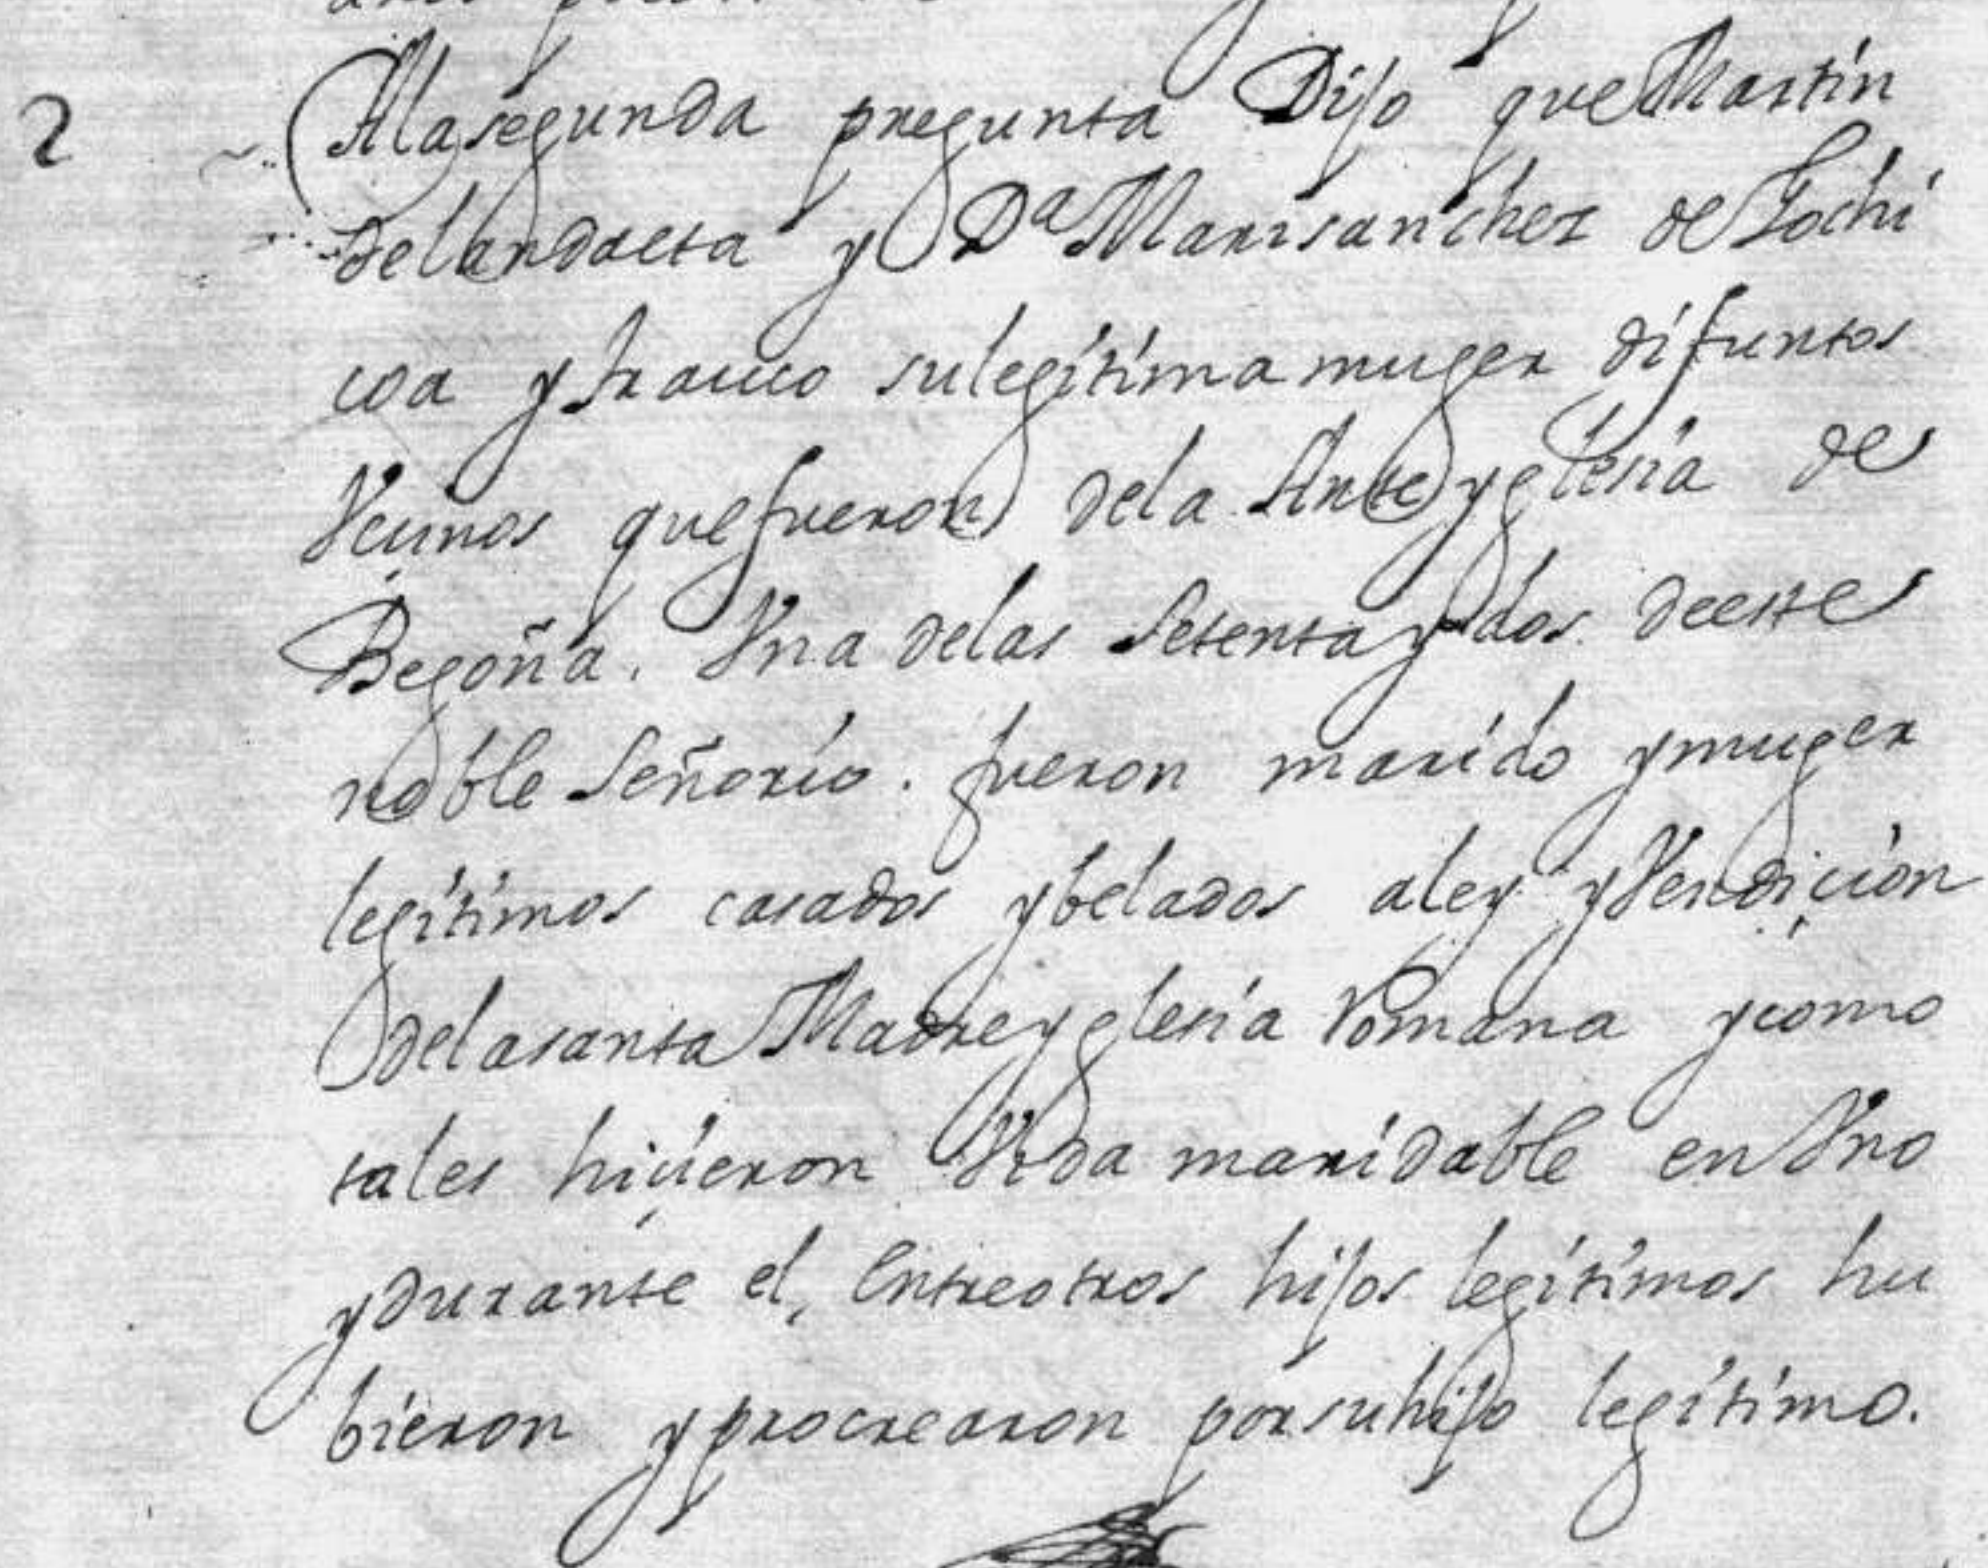 2 A la segunda pregunta Dijo que Martin
de landaeta y Dª Marisanchez de Gochi
coa y trauco su legitima muger difuntos
Vecinos que fueron de la Anteyglesia de
Begoña. Vna de las Setenta y dos de este
noble Señorío. fueron marido y muger
legitimos casados y belados a ley y Vendiçicion
de la santa Madre yglesia Romana y como
tales hiçieron Vida maridable en Vno
y durante el, Entre otros hijos legitimos hu
bieron y procrearon por su hijo legitimo.